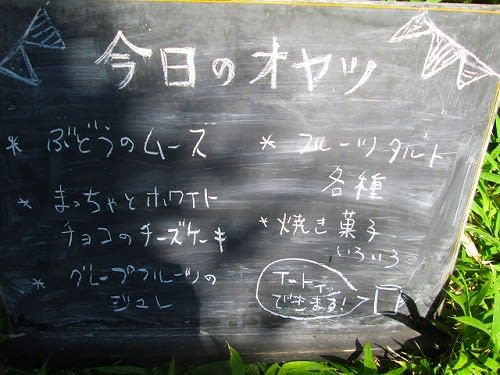 今日のオヤツ
* ぶどうのムース
* まっちゃとホワイト
チョコのチーズケーキ
* グレープフルーツの
ジュレ
* フルーツタルト
各種
* 焼き菓子
いろいろ
イートイン
できます!